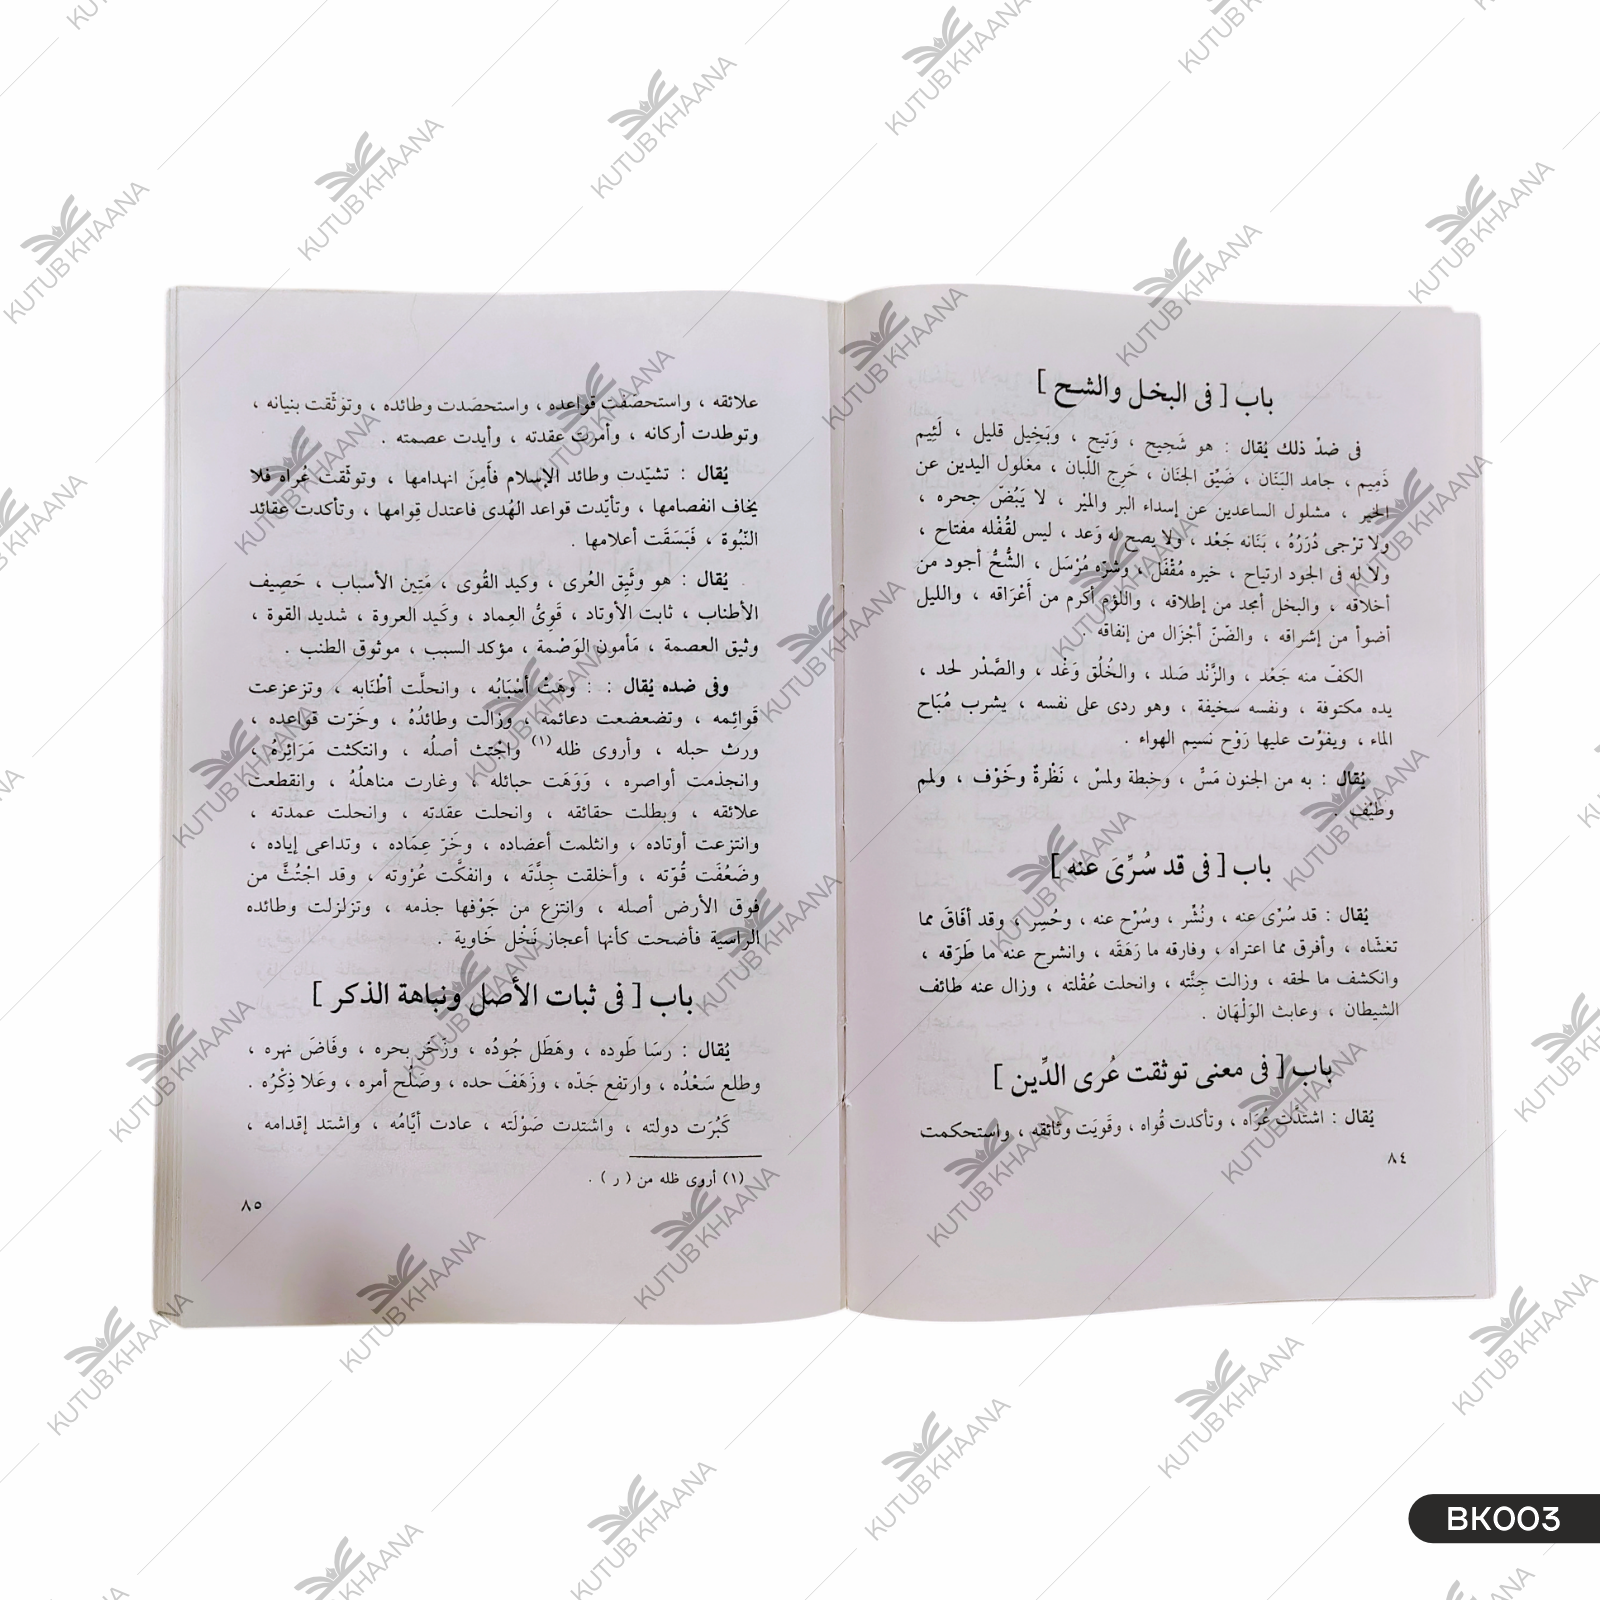 باب [ فى البخل والشح ]
فى ضدْ ذلك يُقال : هو شَحِيح ، وَتيح ، وبَخِيل قليل ، لَئِيم
ذَمِيم ، جامد البَنَان ، ضَيْق الجَنَان ، حَرِج اللّبان ، مغلول اليدين عن
الخير ، مشلول الساعدين عن إسداء البر والميْر ، لا يَبُضّ جحره ،
ولا تُرْجى دُرَرُهُ ، بَنَانه جَعْد ، ولا يصح له وَعد ، ليس لقُفْله مفتاح ،
ولا له فى الجود ارتياح ، خيره مُقْفَل ، وشرّه مُرْسَل ، الشُّحُّ أجود من
أخلاقه ، والبخل أمجد من إطلاقه ، واللؤم أكرم من أَعْرَاقه ، والليل
أضوأ من إشراقه ، والضّنّ أجْزَال من إنفاقه .
الكفّ منه جَعْد ، والزَّند صَلد ، والخُلُق وَغْد ، والصَّدْر لحد ،
يده مكتوفة ، ونفسه سخيفة ، وهو ردى على نفسه ، يشرب مُبَاح
الماء ، ويفوّت عليها رَوْح نسيم الهواء .
يُقال : به من الجنون مَسّ ، وخبطة ولمسّ ، نَظْرةٌ وخَوْف ، ولمم
وطَيْف .
باب [ فى قد سُرِّىَ عنه ]
يُقال : قد سُرْى عنه ، ونُشْر ، وسُرْح عنه ، وحُسِر ، وقد أفَاقَ مما
تغشّاه ، وأفرق مما اعتراه ، وفارقه ما رَهَقَه ، وانشرح عنه ما طَرَقه ،
وانكشف ما لحقه ، وزالت جِنَّته ، وانحلت عُقْلته ، وزال عنه طائف
الشيطان ، وعابث الوَلْهَان .
باب [ فى معنى توثقت عُرى الدِّين ]
يُقال : اشتدّت عُرَاه ، وتأكدت قُواه ، وقَويَت وثَائقه ، واستحكمت
٨٤
علائقه ، واستحصفت قواعده ، واستحصَدت وطائده ، وتوثّقت بنيانه ،
وتوطدت أركانه ، وأمرت عقدته ، وأيدت عصمته .
يُقال : تشيّدت وطائد الإسلام فأَمِنَ انهدامها ، وتوثّقت عُراه فلا
يخاف انفصامها ، وتأيّدت قواعد الهُدى فاعتدل قِوامها ، وتأكدت عقائد
النّبُوة ، فَبَسَقَت أعلامها .
يُقال : هو وثَيِق العُرى ، وكيد القُوى ، مَتِين الأسباب ، حَصِيف
الأطناب ، ثابت الأوتاد ، قَوِىُّ العِماد ، وكَيد العروة ، شديد القوة ،
وثيق العصمة ، مَأمون الوَصْمة ، مؤكد السبب ، موثوق الطنب .
وفى ضده يُقال : : وهَتْ أسْبَابُه ، وانحلَّت أطْنَابه ، وتزعزعت
قَوائِمه ، وتضعضعت دعائمه ، وزالت وطائدُهُ ، وخَرّت قواعده ،
ورث حبله ، وأروى ظله(١) واجْتث أصلُه ، وانتكثت مَرَائِرهُ ،
وانجذمت أواصره ، وَوَهَت حبائله ، وغارت مناهلُهُ ، وانقطعت
علائقه ، وبطلت حقائقه ، وانحلت عقدته ، وانحلت عمدته ،
وانتزعت أوتاده ، وانثلمت أعضاده ، وخَرّ عِمَاده ، وتداعى إياده ،
وضَعُفَت قُوّته ، وأخلقت جِدَّتَه ، وانفكَّت عُرْوته ، وقد اجْتُثَّ من
فوق الأرض أصله ، وانتزع من جَوْفها جذمه ، وتزلزلت وطائده
الراسية فأضحت كأنها أعجاز نَخْل خَاوية .
باب [ فى ثبات الأصل ونباهة الذكر ]
يُقال : رسَا طَوده ، وهَطَل جُودُه ، وزَخَر بحره ، وفَاضَ نهره ،
وطلع سَعْدُه ، وارتفع جَدّه ، وزَهَفَ حده ، وصَلُح أمره ، وعَلا ذِكْرُه .
كَبُرَت دولته ، واشتدت صَوْلَته ، عادت أيَّامُه ، واشتد إقدامه ،
(١) أروى ظله من ( ر ) .
٨٥
BK003
KUTUB KHAANA